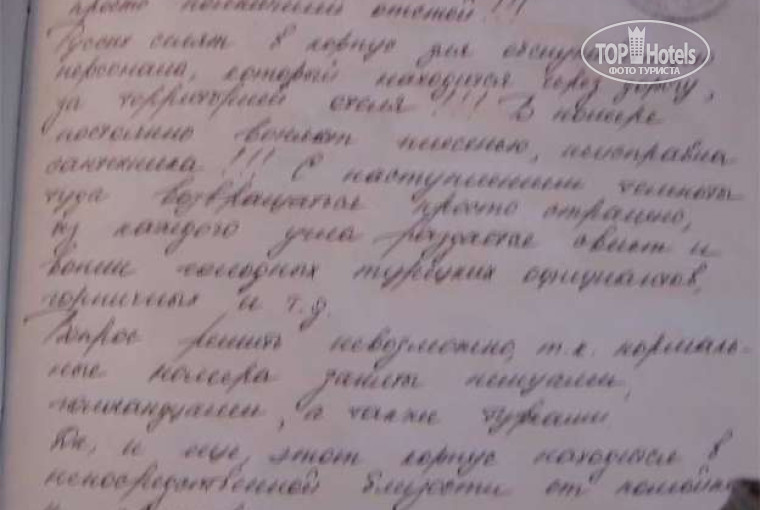 просто
отстой!!!
Русских селят в корпус для обслу
TOPHotels
ФОТО ТУРИСТА
персонала, который находится через дорогу,
за территорией отеля!!! В номере
постоянно воняет плесенью, неисправна
сантехника!!! С наступлением темноты
туда возвращаться просто страшно,
из каждого угла раздается свист и
вопли голодных турецких официантов,
горничных и т.д.
Вопрос решить невозможно, т.к. нормаль-
ные номера заняты немцами,
голландцами, а также турками
Да, и еще, этот корпус находится в
непосредственной близости от помойки